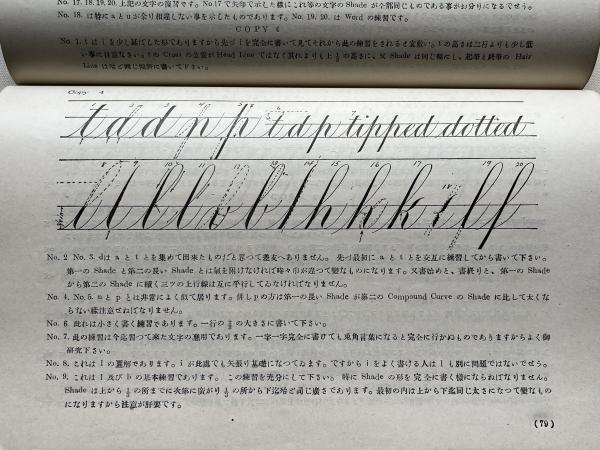 No. 17. 18. 19. 20. 上記の文字の復習です。No. 17で矢印で示した様にこれ等の文字の Shade が全部同じものである事がお分りになるでせう。
No. 18. は特に a と u が余り相違しない事を示したものであります。No. 19. 20. は Word の練習です。
COPY 4
No. 1. t は i を少し延ばした形でありますから先づ i を完全に書いて見てそれから此の練習をされると宜敷い。t の高さは二行よりも少し低い
Line は殆ど同じ傾斜に書いて下さい。
Copy 4
1 2 3 4 5 6 7
t d d p p t d p tipped dotted
8 9 10 11 12 13 14 15 16 17 18 19 20
No. 2 No. 3. d は a と t とを集めて出来たものだと思つて差支へありません。先づ最初に a と t とを交互に練習してから書いて下さい。
第一の Shade と第二の長い Shade とは気を附けなければ時々巾が違つて変なものになります。又書始めと、書終りと、第一の Shade
から第二の Shade に続く三ツの上行線は互に平行してゐなければなりません。
No. 4. No. 5. n と p とは非常によく似て居ります。併し p の方は第一の長い Shade が第二の Compound Curve の Shade に比して太くな
らない様注意せねばなりません。
No. 6. 此れは小さく書く練習であります。一行の の大きさに書いて下さい。
No. 7. 此の練習は今迄習つて来た文字の應用であります。一字一字完全に書けても兎角言葉になると完全に行かぬものでありますからよく御
研究下さい。
No. 8. これは l の置解であります。i が此處でも矢張り基礎になつてゐます。ですから i をよく書ける人は l も別に問題ではないでせう。
No. 9. これは l 及び b の基本練習であります。この練習を充分にして下さい。特に Shade の形を完全に書く様にならねばなりません。
Shade は上から の所までに次第に広がり の所から下迄殆ど同じ広さであります。最初の内は上から下迄同じ太さになつて変なもの
になりますから注意が肝要です。
(79)